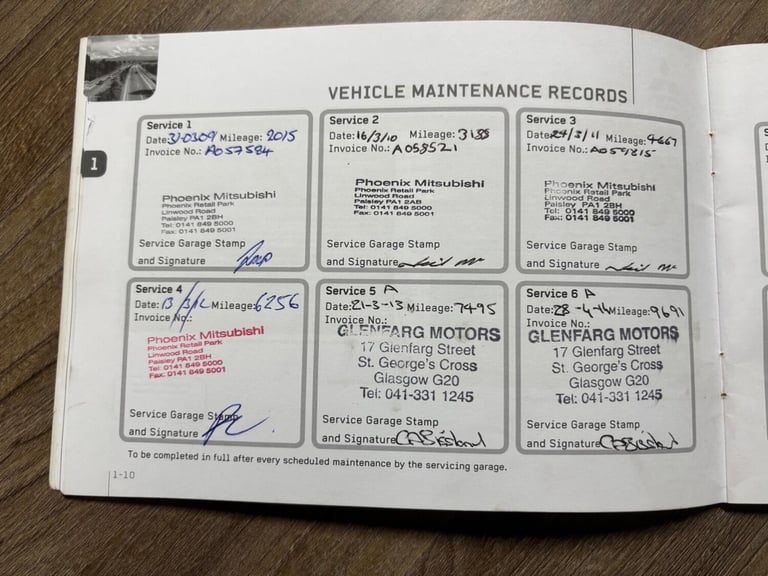 VEHICLE MAINTENANCE RECORDS
1
Service 1
Date: 31-03-09 Mileage: 2015
Invoice No.: A057584
Phoenix Mitsubishi
Phoenix Retail Park
Linwood Road
Paisley PA1 2BH
Tel: 0141 849 5000
Fax: 0141 849 5001
Service Garage Stamp
and Signature
Service 2
Date: 16/3/10 Mileage: 3188
Invoice No.: A058521
Phoenix Mitsubishi
Phoenix Retail Park
Linwood Road
Paisley PA1 2AB
Tel: 0141 849 5000
Fax: 0141 849 5001
Service Garage Stamp
and Signature
Service 3
Date: 24/3/11 Mileage: 4667
Invoice No.: A059815
Phoenix Mitsubishi
Phoenix Retail Park
Linwood Road
Paisley PA1 2BH
Tel: 0141 849 5000
Fax: 0141 849 5001
Service Garage Stamp
and Signature
Service 4
Date: 13/3/12 Mileage: 6256
Invoice No.:
Phoenix Mitsubishi
Phoenix Retail Park
Linwood Road
Paisley PA1 2BH
Tel: 0141 849 5000
Fax: 0141 849 5001
Service Garage Stamp
and Signature
Service 5 A
Date: 21-3-13 Mileage: 7495
Invoice No.:
GLENFARG MOTORS
17 Glenfarg Street
St. George's Cross
Glasgow G20
Tel: 041-331 1245
Service Garage Stamp
and Signature
Service 6 A
Date: 28-4-14 Mileage: 9691
Invoice No.:
GLENFARG MOTORS
17 Glenfarg Street
St. George's Cross
Glasgow G20
Tel: 041-331 1245
Service Garage Stamp
and Signature
To be completed in full after every scheduled maintenance by the servicing garage.
1-10